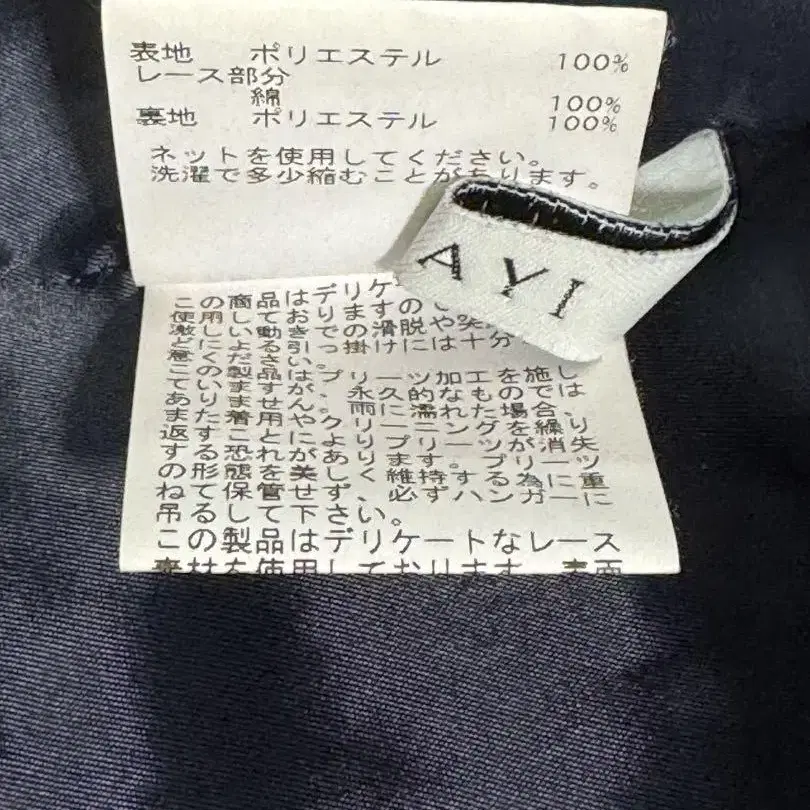 表地 ポリエステル 100%
レース部分
綿 100%
裏地 ポリエステル 100%
ネットを使用してください。
洗濯で多少縮むことがあります。
AYI
この商品はデリケ
使用しておりますので
激しい動きでの滑脱や
どによる引っ掛けには十分
意ください。
この製品はプリーツ加工を施し
てありますが、永久的なものでは
ありません。雨に濡れた場合、
また着用やクリーニングを繰り
返すことによりプリーツが消失
する恐れがあります。プリーツ
の形態を美しく維持する為に重
ねて保管せず、必ずハンガーに
吊るして下さい。
この製品はデリケートなレース
素材を使用しております。表面